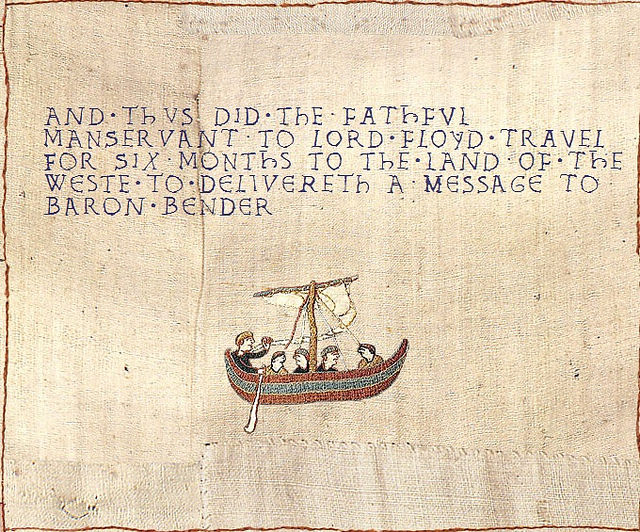 AND·THUS DID·THE·FATHFUL
MANSERVANT·TO LORD·FLOYD·TRAVEL
FOR SIX·MONTHS TO THE·LAND·OF·THE
WESTE·TO·DELIVERETH A·MESSAGE TO
BARON·BENDER